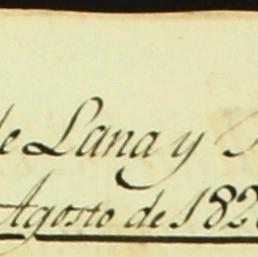 de Lana y
Agosto de 182